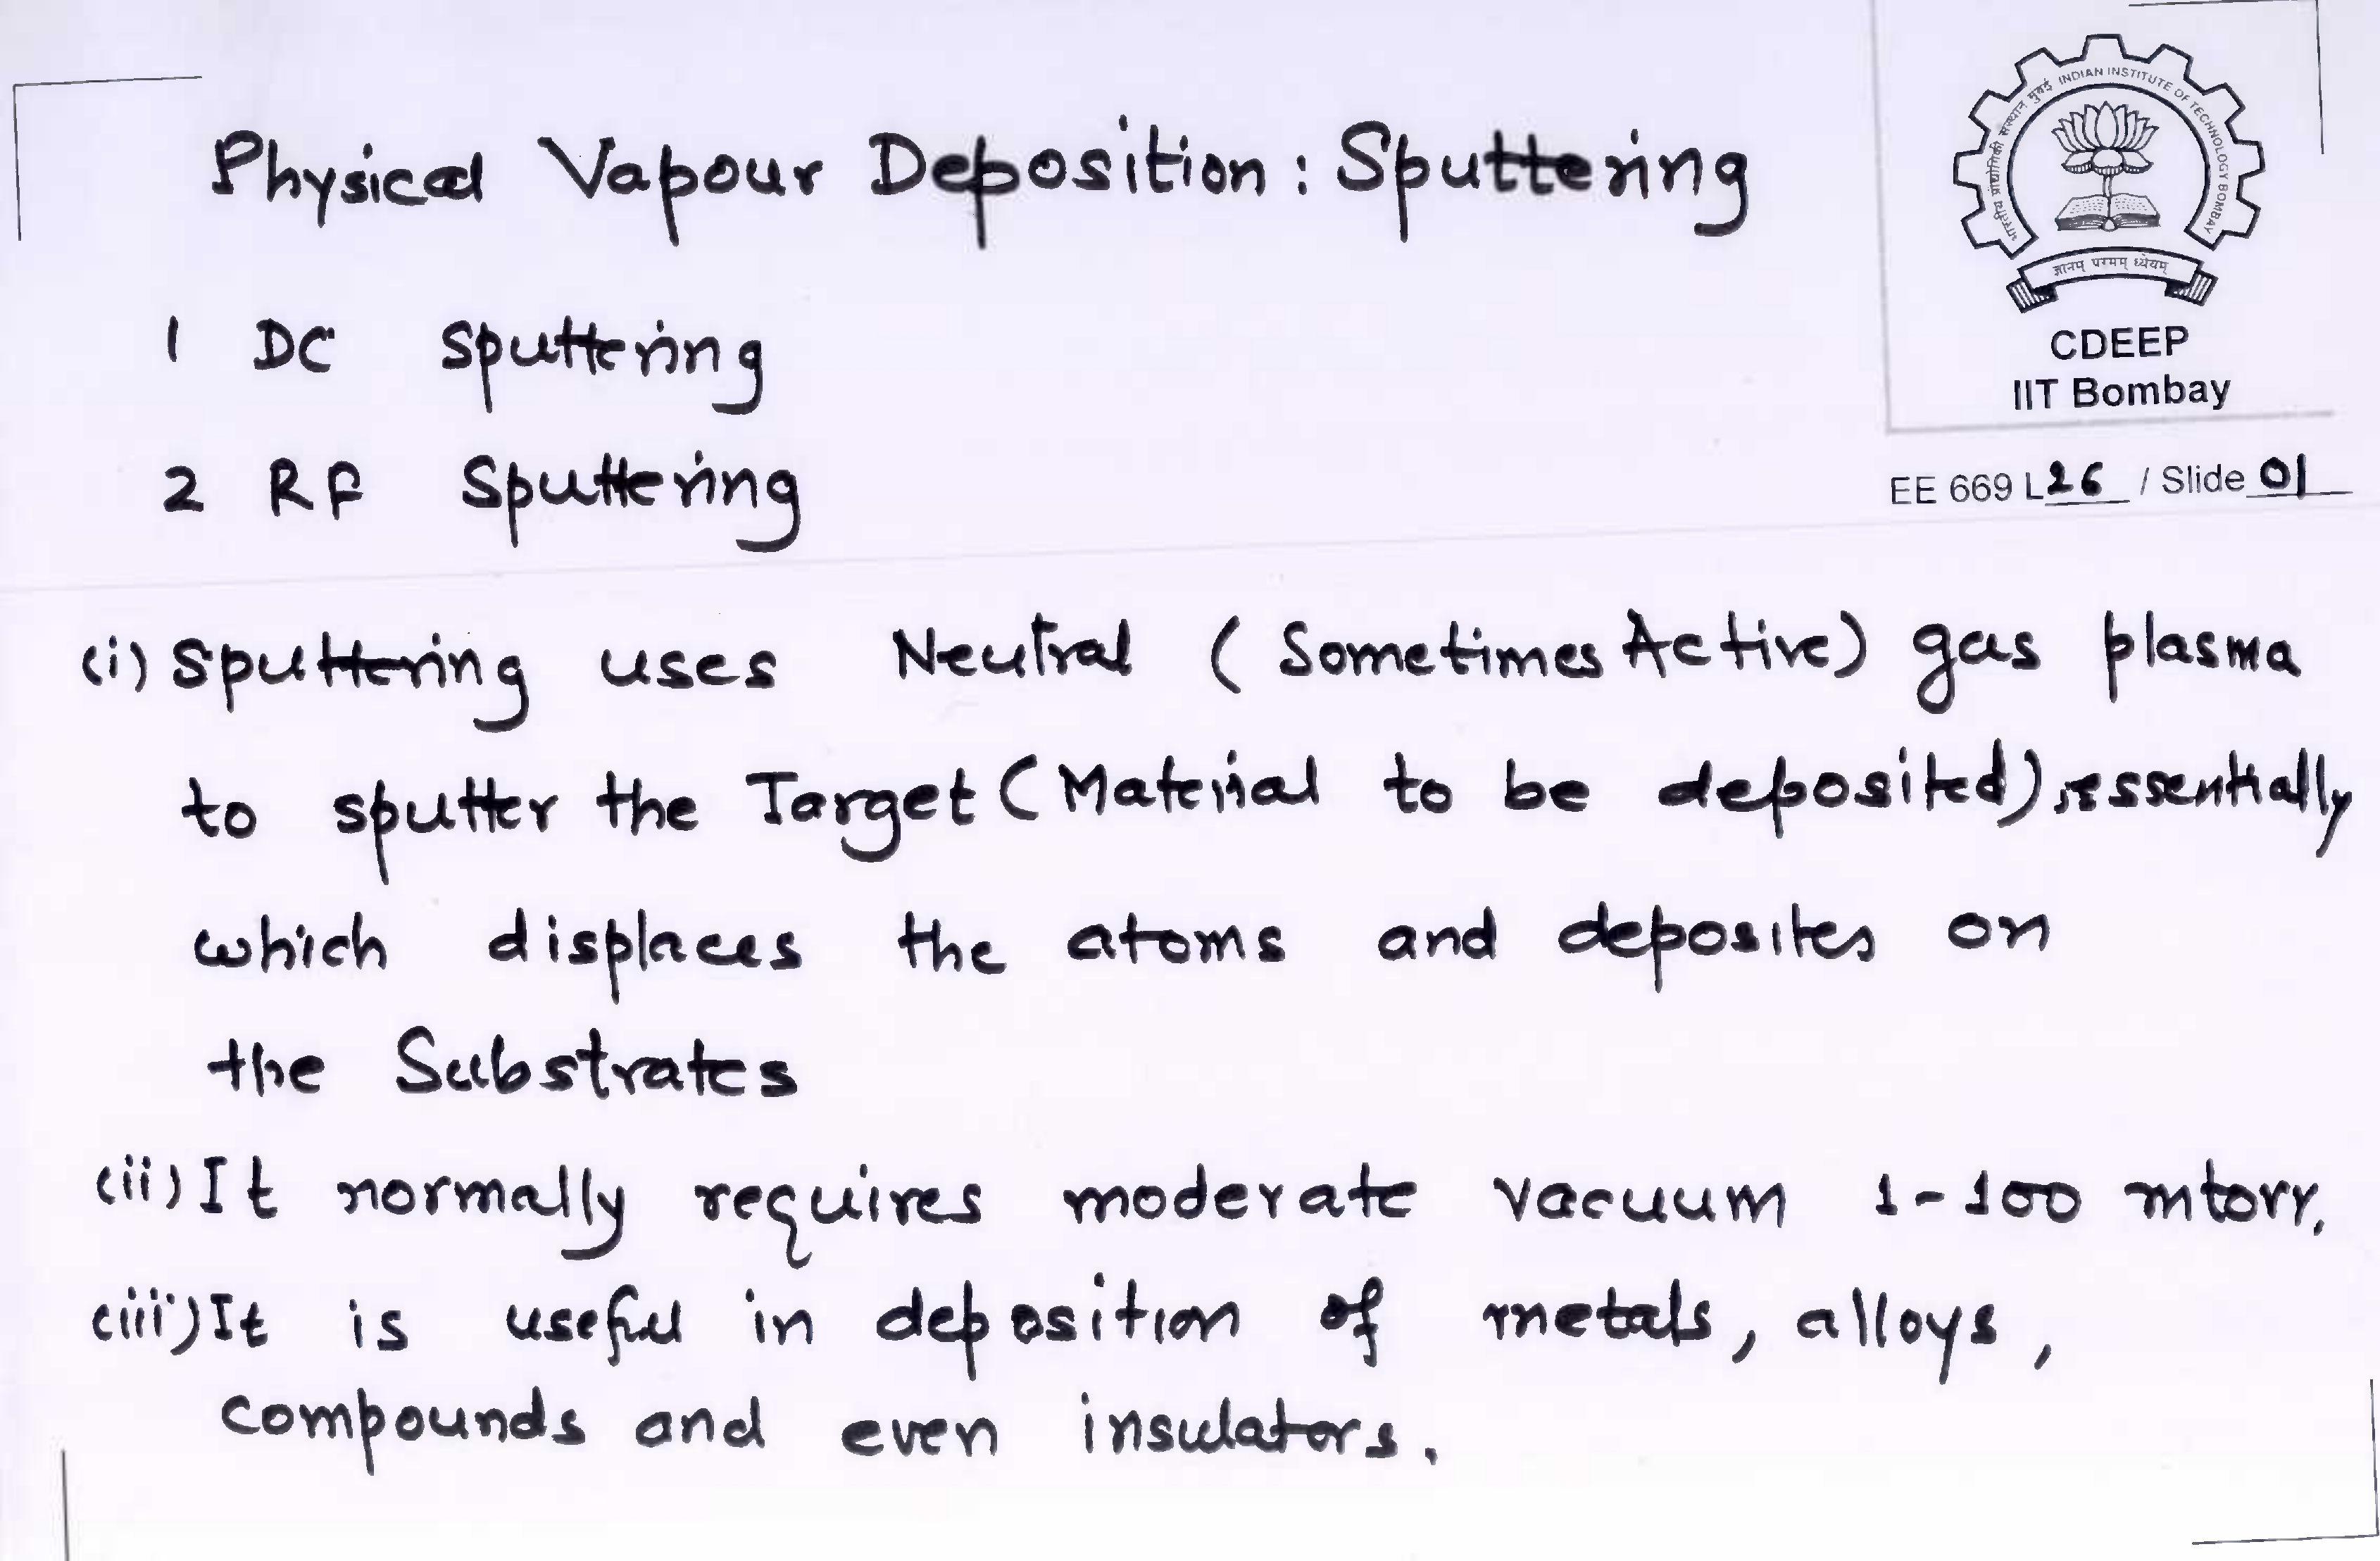 Physical Vapour Deposition : Sputtering
भारतीय प्रौद्योगिकी संस्थान मुंबई INDIAN INSTITUTE OF TECHNOLOGY BOMBAY
ज्ञानम् परमम् ध्येयम्
CDEEP
IIT Bombay
EE 669 L26 / Slide 01
1 DC Sputtering
2 RF Sputtering
(i) Sputtering uses Neutral (Sometimes Active) gas plasma
to sputter the Target (Material to be deposited), essentially
which displaces the atoms and deposites on
the Substrates
(ii) It normally requires moderate vacuum 1-100 mtorr.
(iii) It is useful in deposition of metals, alloys,
compounds and even insulators.